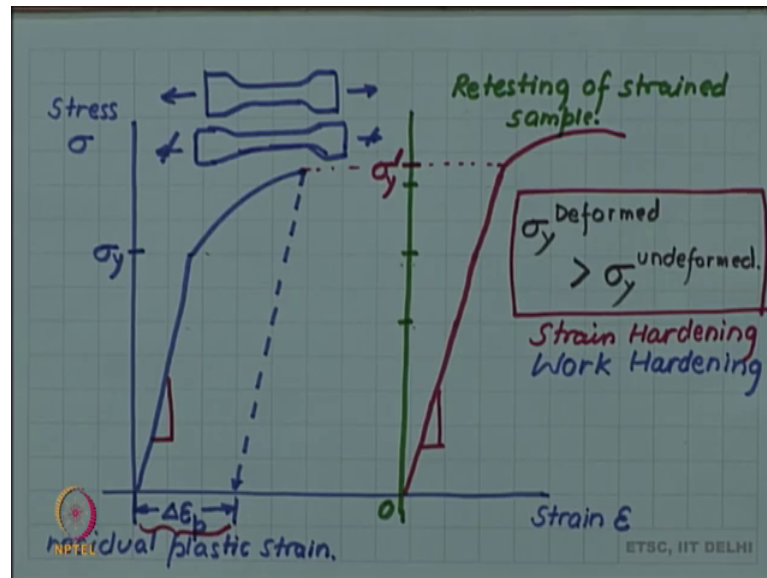 Stress
σ
σy
Retesting of strained
sample.
σy'
σy Deformed
> σy undeformed.
Strain Hardening
Work Hardening
ΔEp
0
Strain ε
residual plastic strain.
NPTEL
ETSC, IIT DELHI